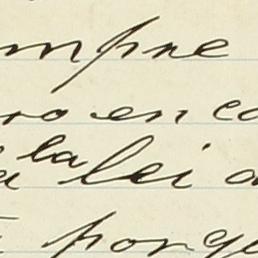 mpre
ro en co
la lei
porqu